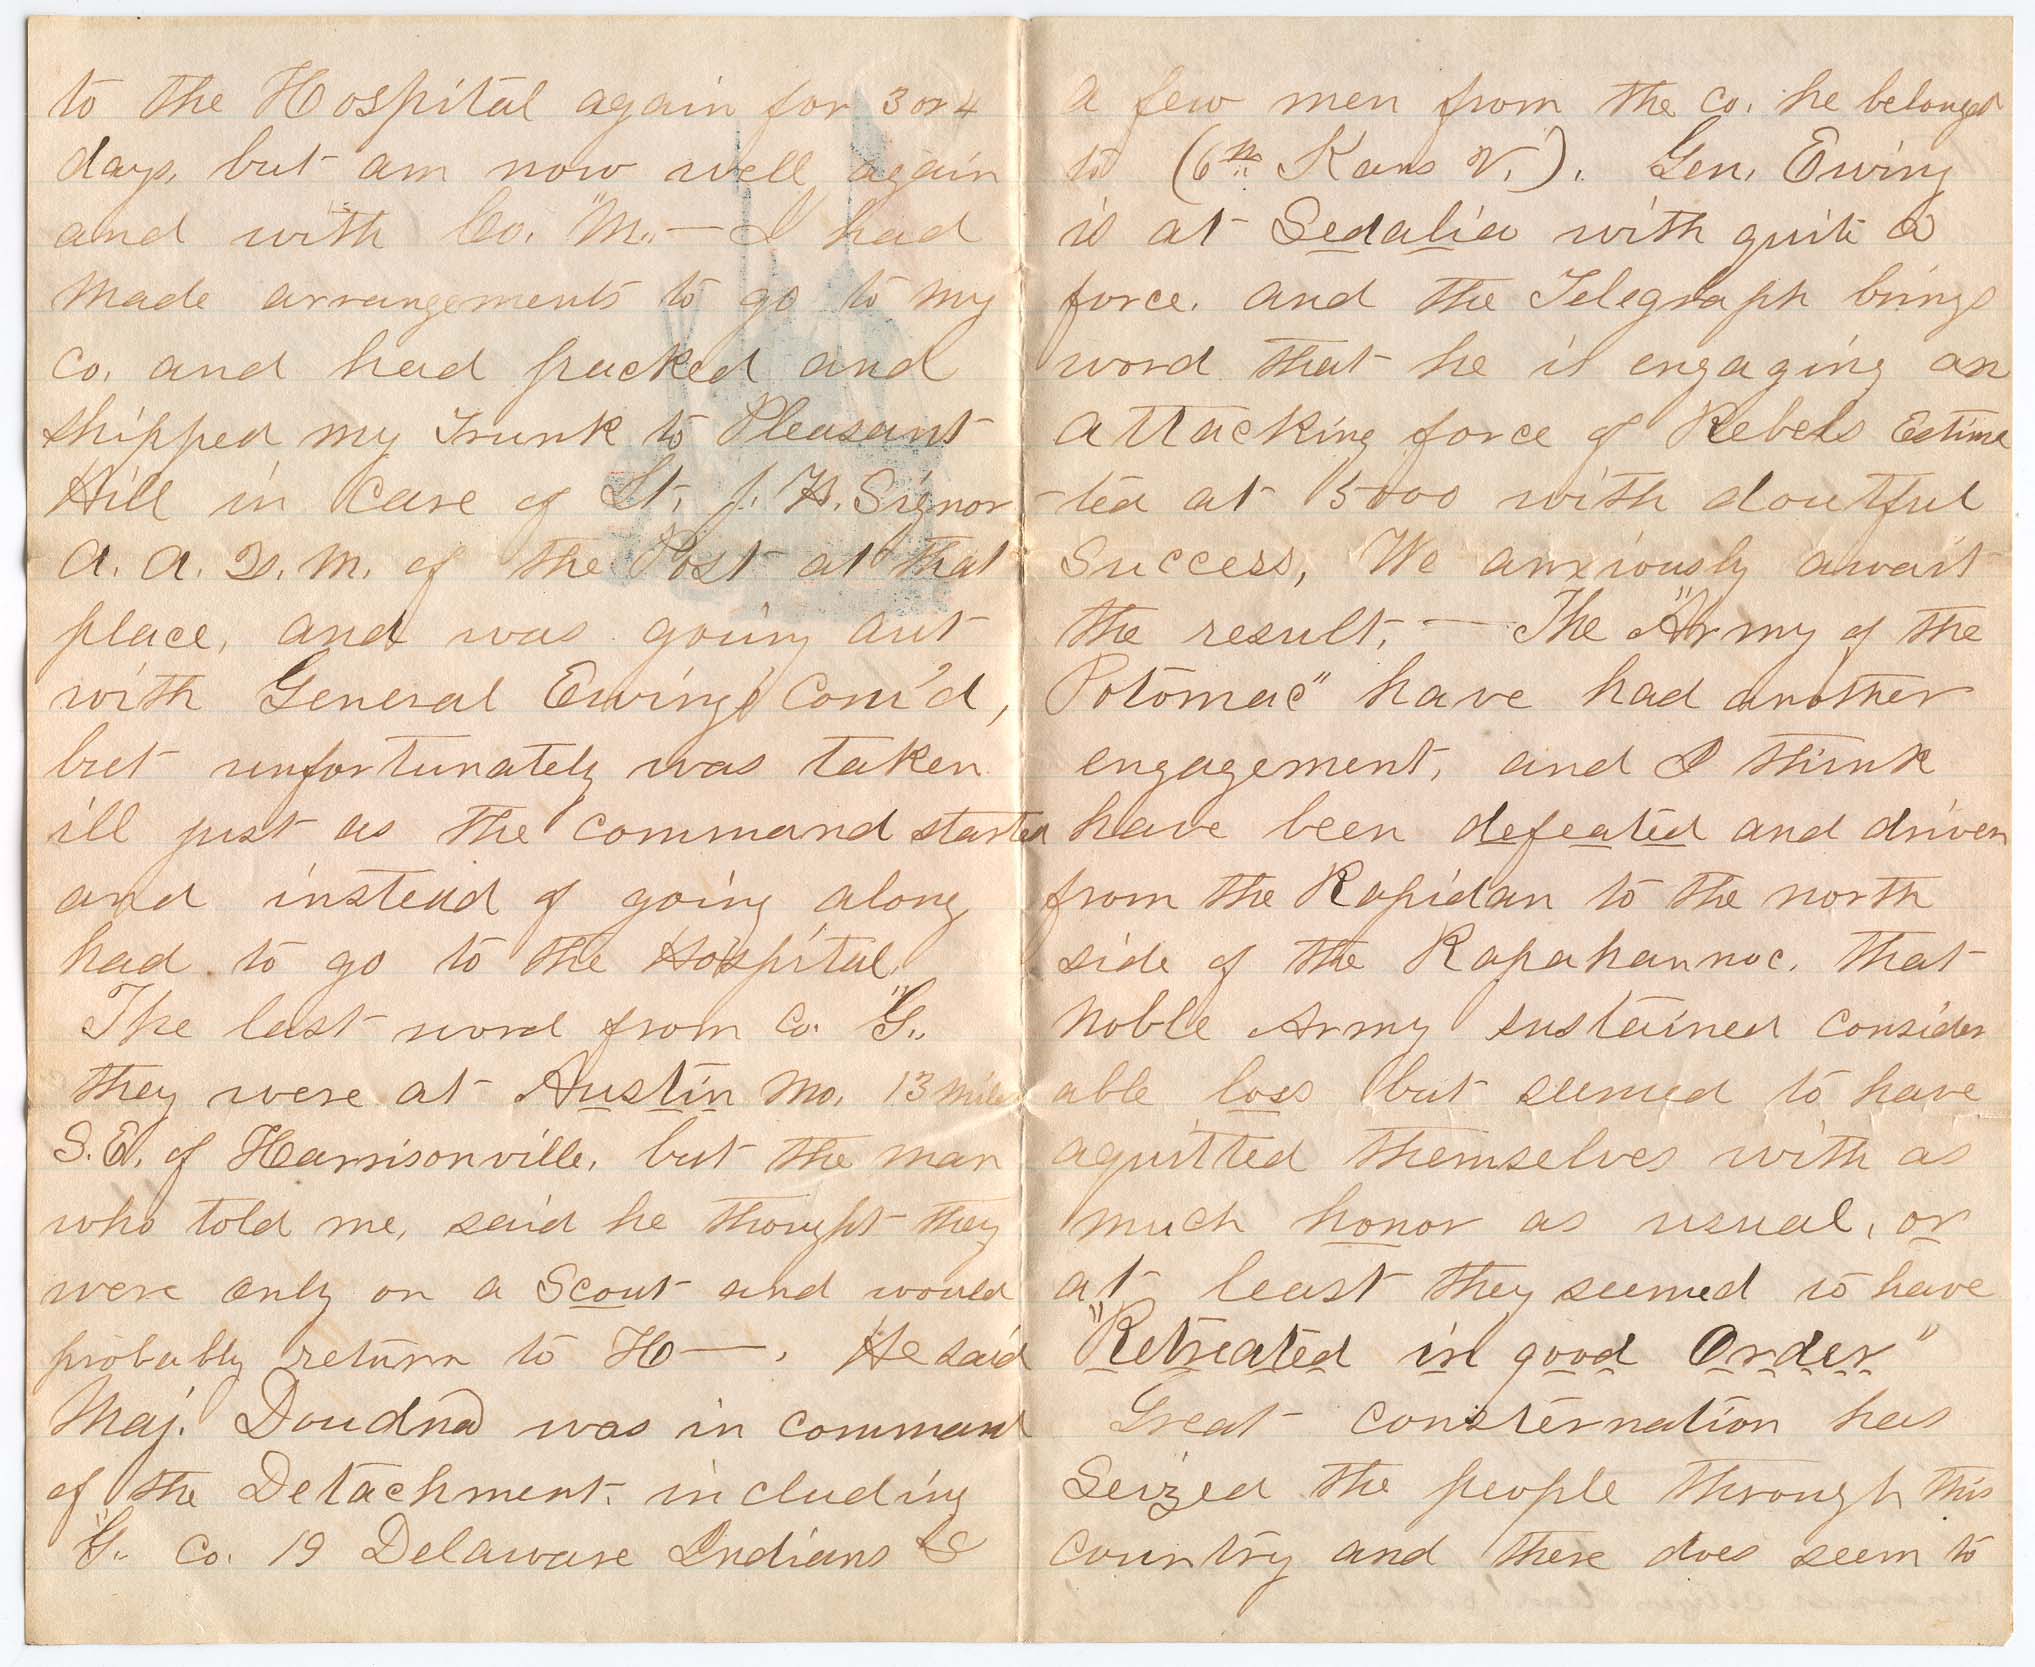 to the Hospital again for 3 or 4
days, but am now well again
and with Co. "M." — I had
made arrangements to go to my
Co. and had packed and
shipped my Trunk to Pleasant
Hill in care of Lt. J. H. Signor
A. A. Q. M. of the Post at that
place, and was going out
with General Ewing's Com'd,
but unfortunately was taken
ill just as the command started
and instead of going along
had to go to the Hospital.
The last word from Co. "G."
they were at Austin Mo. 13 miles
S.E. of Harrisonville, but the man
who told me, said he thought they
were only on a Scout and would
probably return to H—. He said
Maj. Doudna was in command
of the Detachment. including
"G." Co. 19 Delaware Indians &
a few men from the Co. he belonged
to (6th Kans V.). Gen. Ewing
is at Sedalia with quite a
force. and the Telegraph brings
word that he is engaging an
attacking force of Rebels Estima
-ted at 5000 with doutful
Success, We anxiously await
the result. — The "Army of the
Potomac" have had another
engagement, and I think
have been defeated and driven
from the Rapidan to the north
side of the Rapahannoc. that
noble Army sustained consider
able loss but seemed to have
aquitted themselves with as
much honor as usual, or
at least they seemed to have
"Retreated in good Order"
Great consternation has
Seized the people through this
Country and there does seem to